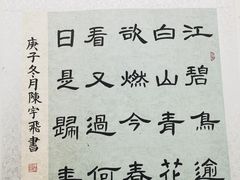 江碧鳥逾
白山青花
欲燃今春
看又過何
日是歸年
庚子冬月陳宇飛書